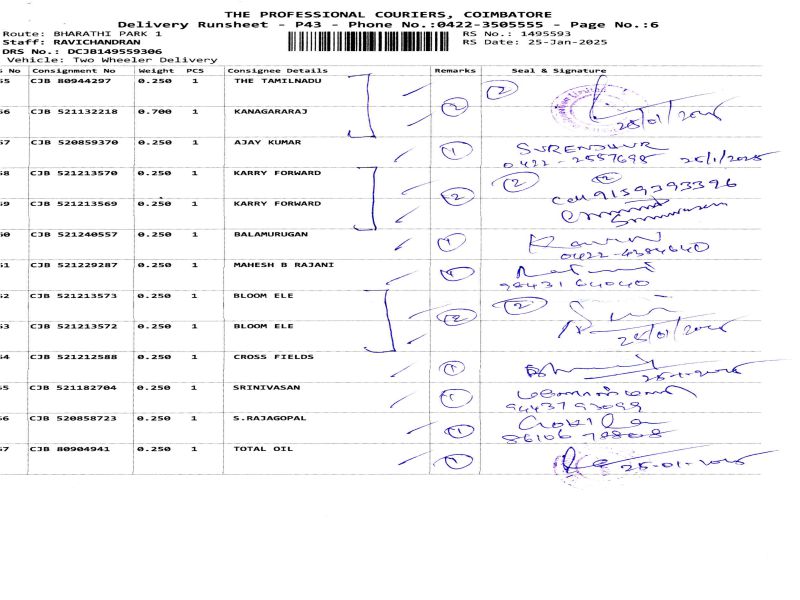 THE PROFESSIONAL COURIERS, COIMBATORE
Delivery Runsheet - P43 - Phone No.:0422-3505555 - Page No.:6
Route: BHARATHI PARK 1 RS No.: 1495593
Staff: RAVICHANDRAN RS Date: 25-Jan-2025
DRS No.: DCJB149559306
Vehicle: Two Wheeler Delivery
No Consignment No Weight PCS Consignee Details Remarks Seal & Signature
55 CJB 80944297 0.250 1 THE TAMILNADU 2
56 CJB 521132218 0.700 1 KANAGARARAJ 2 25/01/2025
57 CJB 520859370 0.250 1 AJAY KUMAR 1 SURENDHUR
0422-2557698 25/1/2025
58 CJB 521213570 0.250 1 KARRY FORWARD 2 2 2
Cell 9159393396
59 CJB 521213569 0.250 1 KARRY FORWARD
60 CJB 521240557 0.250 1 BALAMURUGAN 1
0422-4384640
61 CJB 521229287 0.250 1 MAHESH B RAJANI 1
98431 64040
62 CJB 521213573 0.250 1 BLOOM ELE 2 2
63 CJB 521213572 0.250 1 BLOOM ELE 25/01/2025
64 CJB 521212588 0.250 1 CROSS FIELDS 1 25-1-2025
65 CJB 521182704 0.250 1 SRINIVASAN 1
94437 93099
66 CJB 520858723 0.250 1 S.RAJAGOPAL 1
86106 78808
67 CJB 80904941 0.250 1 TOTAL OIL 1 25-01-2025